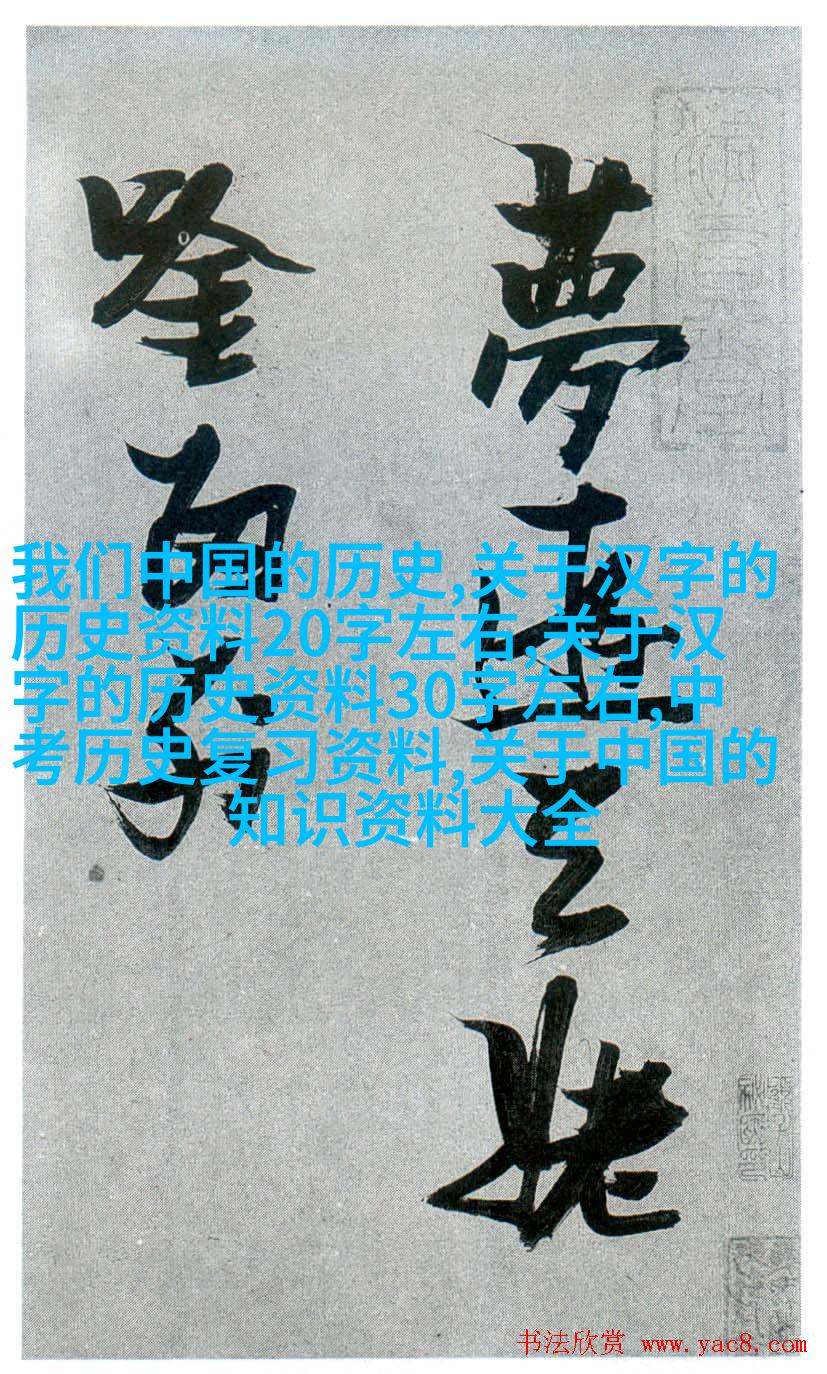 夢遊天姥
唫
我们中国的历史,关于汉字的
历史资料20字左右,关于汉
字的历史资料30字左右,中
考历史复习资料,关于中国的
知识资料大全
书法欣赏 www.yac8.com